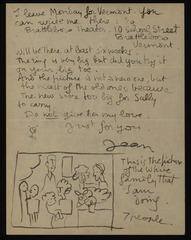 I leave Monday for Vermont you
can write me there
Brattleboro Theater 10 School Street
Brattleboro
Vermont
Will be there at least six weeks
The ring is very big but did you try it
on your big toe.
And the picture is not a new one, but
the neast of the old ones because
The new were too big for Sally
to carry
Do not give her my love
just for you
Jean
This is the picture
of the White
family that
I am
doing
7 people